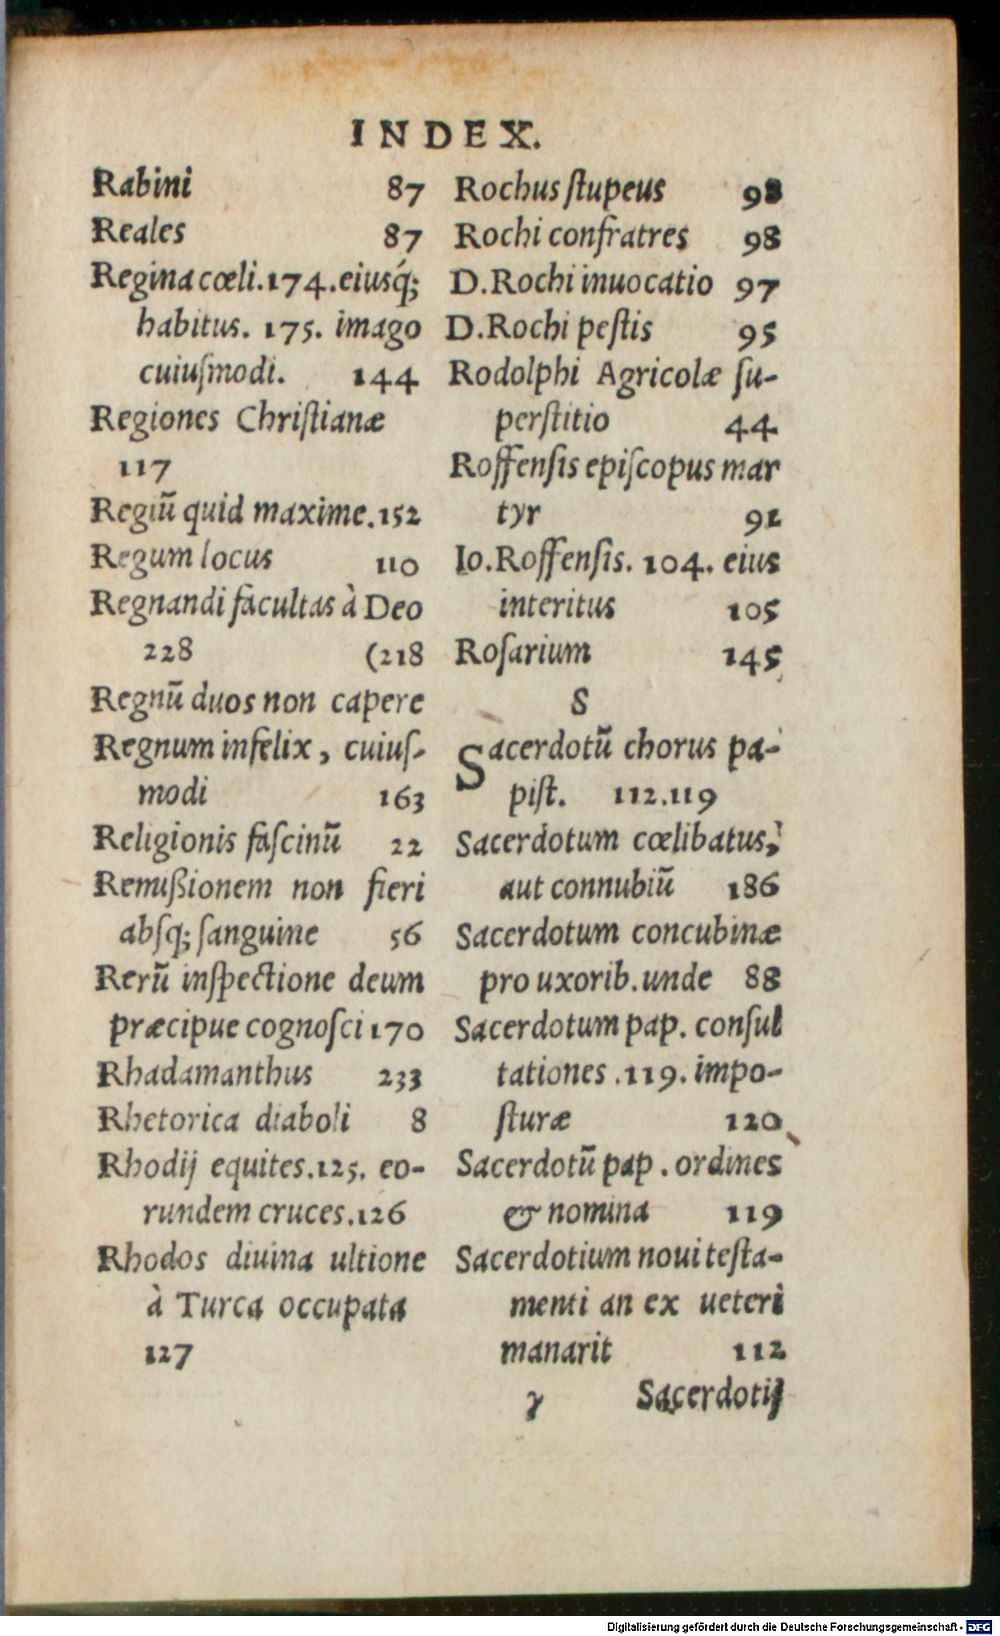 INDEX.
Rabini 87
Reales 87
Regina cœli.174.eiusq́;
habitus. 175. imago
cuiuſmodi. 144
Regiones Chriſtianæ
117
Regiū quid maxime.152
Regum locus 110
Regnandi facultas à Deo
228 (218
Regnū duos non capere
Regnum infelix, cuiuſ-
modi 163
Religionis faſcinū 22
Remiſsionem non fieri
abſq; ſanguine 56
Rerū inſpectione deum
præcipue cognoſci 170
Rhadamanthus 233
Rhetorica diaboli 8
Rhodij equites.125. eo-
rundem cruces.126
Rhodos diuina ultione
à Turca occupata
127
Rochus ſtupeus 98
Rochi confratres 98
D.Rochi inuocatio 97
D.Rochi peſtis 95
Rodolphi Agricolæ ſu-
perſtitio 44
Roffenſis epiſcopus mar
tyr 91
Io.Roffenſis. 104. eius
interitus 105
Roſarium 145
S
Sacerdotū chorus pa-
piſt. 112.119
Sacerdotum cœlibatus,
aut connubiū 186
Sacerdotum concubinæ
pro uxorib.unde 88
Sacerdotum pap. conſul
tationes .119. impo-
ſturæ 120
Sacerdotū pap. ordines
& nomina 119
Sacerdotium noui teſta-
menti an ex ueteri
manarit 112
γ Sacerdotij
Digitalisierung gefördert durch die Deutsche Forschungsgemeinschaft - DFG